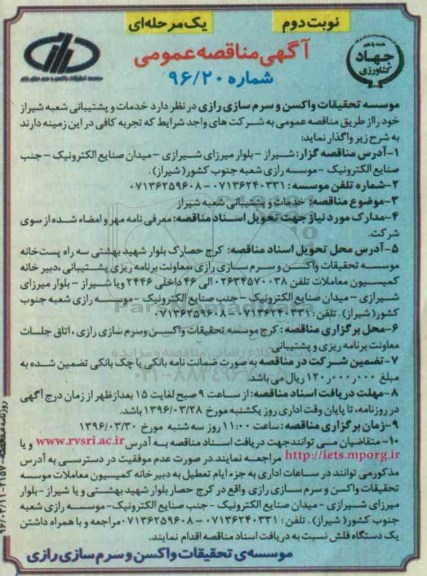 نوبت دوم
یک مرحله ای
آگهی مناقصه عمومی
شماره ۹۶/۲۰
همه با هم
جهاد
کشاورزی
موسسه تحقیقات واکسن و سرم سازی رازی در نظر دارد خدمات و پشتیبانی شعبه شیراز
خود را از طریق مناقصه عمومی به شرکت های واجد شرایط که تجربه کافی در این زمینه دارند
به شرح زیر واگذار نماید:
۱-آدرس مناقصه گزار: شیراز - بلوار میرزای شیرازی - میدان صنایع الکترونیک - جنب
صنایع الکترونیک - موسسه رازی شعبه جنوب کشور (شیراز).
۲-شماره تلفن موسسه: ۰۷۱۳۶۲۴۰۳۳۱ - ۰۷۱۳۶۲۵۹۶۰۸
۳-موضوع مناقصه: خدمات و پشتیبانی شعبه شیراز
۴-مدارک مورد نیاز جهت تحویل اسناد مناقصه: معرفی نامه مهر و امضاء شده از سوی
شرکت.
۵-آدرس محل تحویل اسناد مناقصه: کرج حصارک بلوار شهید بهشتی سه راه پست خانه
موسسه تحقیقات واکسن و سرم سازی رازی، معاونت برنامه ریزی و پشتیبانی، دبیر خانه
کمیسیون معاملات تلفن ۰۲۶۳۴۵۷۰۰۳۸ الی ۴۶ داخلی ۲۴۴۶ ویا شیراز - بلوار میرزای
شیرازی - میدان صنایع الکترونیک - جنب صنایع الکترونیک - موسسه رازی شعبه جنوب
کشور (شیراز). تلفن: ۰۷۱۳۶۲۴۰۳۳۱ - ۰۷۱۳۶۲۵۹۶۰۸
۶-محل برگزاری مناقصه: کرج موسسه تحقیقات واکسن و سرم سازی رازی، اتاق جلسات
معاونت برنامه ریزی و پشتیبانی.
۷-تضمین شرکت در مناقصه به صورت ضمانت نامه بانکی یا چک بانکی تضمین شده به
مبلغ ۱۲۰,۰۰۰,۰۰۰ ریال می باشد.
۸-مهلت دریافت اسناد مناقصه: از ساعت ۹ صبح لغایت ۱۵ بعدازظهر از زمان درج آگهی
در روزنامه، تا پایان وقت اداری روز یکشنبه مورخ ۱۳۹۶/۰۳/۲۸ باشد.
۹-زمان برگزاری مناقصه: ساعت ۱۱:۰۰ روز سه شنبه مورخ ۱۳۹۶/۰۳/۳۰
۱۰-متقاضیان می توانند جهت دریافت اسناد مناقصه به آدرس www.rvsri.ac.ir و یا
http://iets.mporg.ir مراجعه نمایند. در صورت عدم موفقیت در دسترسی به آدرس
مذکور می توانند در ساعات اداری به جزء ایام تعطیل به دبیرخانه کمیسیون معاملات موسسه
تحقیقات واکسن و سرم سازی رازی واقع در کرج حصار بلوار شهید بهشتی و یا شیراز - بلوار
میرزای شیرازی - میدان صنایع الکترونیک - جنب صنایع الکترونیک - موسسه رازی شعبه
جنوب کشور (شیراز). تلفن: ۰۷۱۳۶۲۴۰۳۳۱ - ۰۷۱۳۶۲۵۹۶۰۸ مراجعه و با همراه داشتن
یک دستگاه فلش نسبت به دریافت اسناد مناقصه اقدام نمایند.
موسسه ی تحقیقات واکسن و سرم سازی رازی